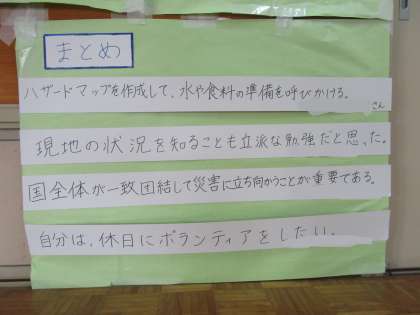 まとめ
ハザードマップを作成して、水や食料の準備を呼びかける。
さん
現地の状況を知ることも立派な勉強だと思った。
国全体が一致団結して災害に立ち向かうことが重要である。
自分は、休日にボランティアをしたい。